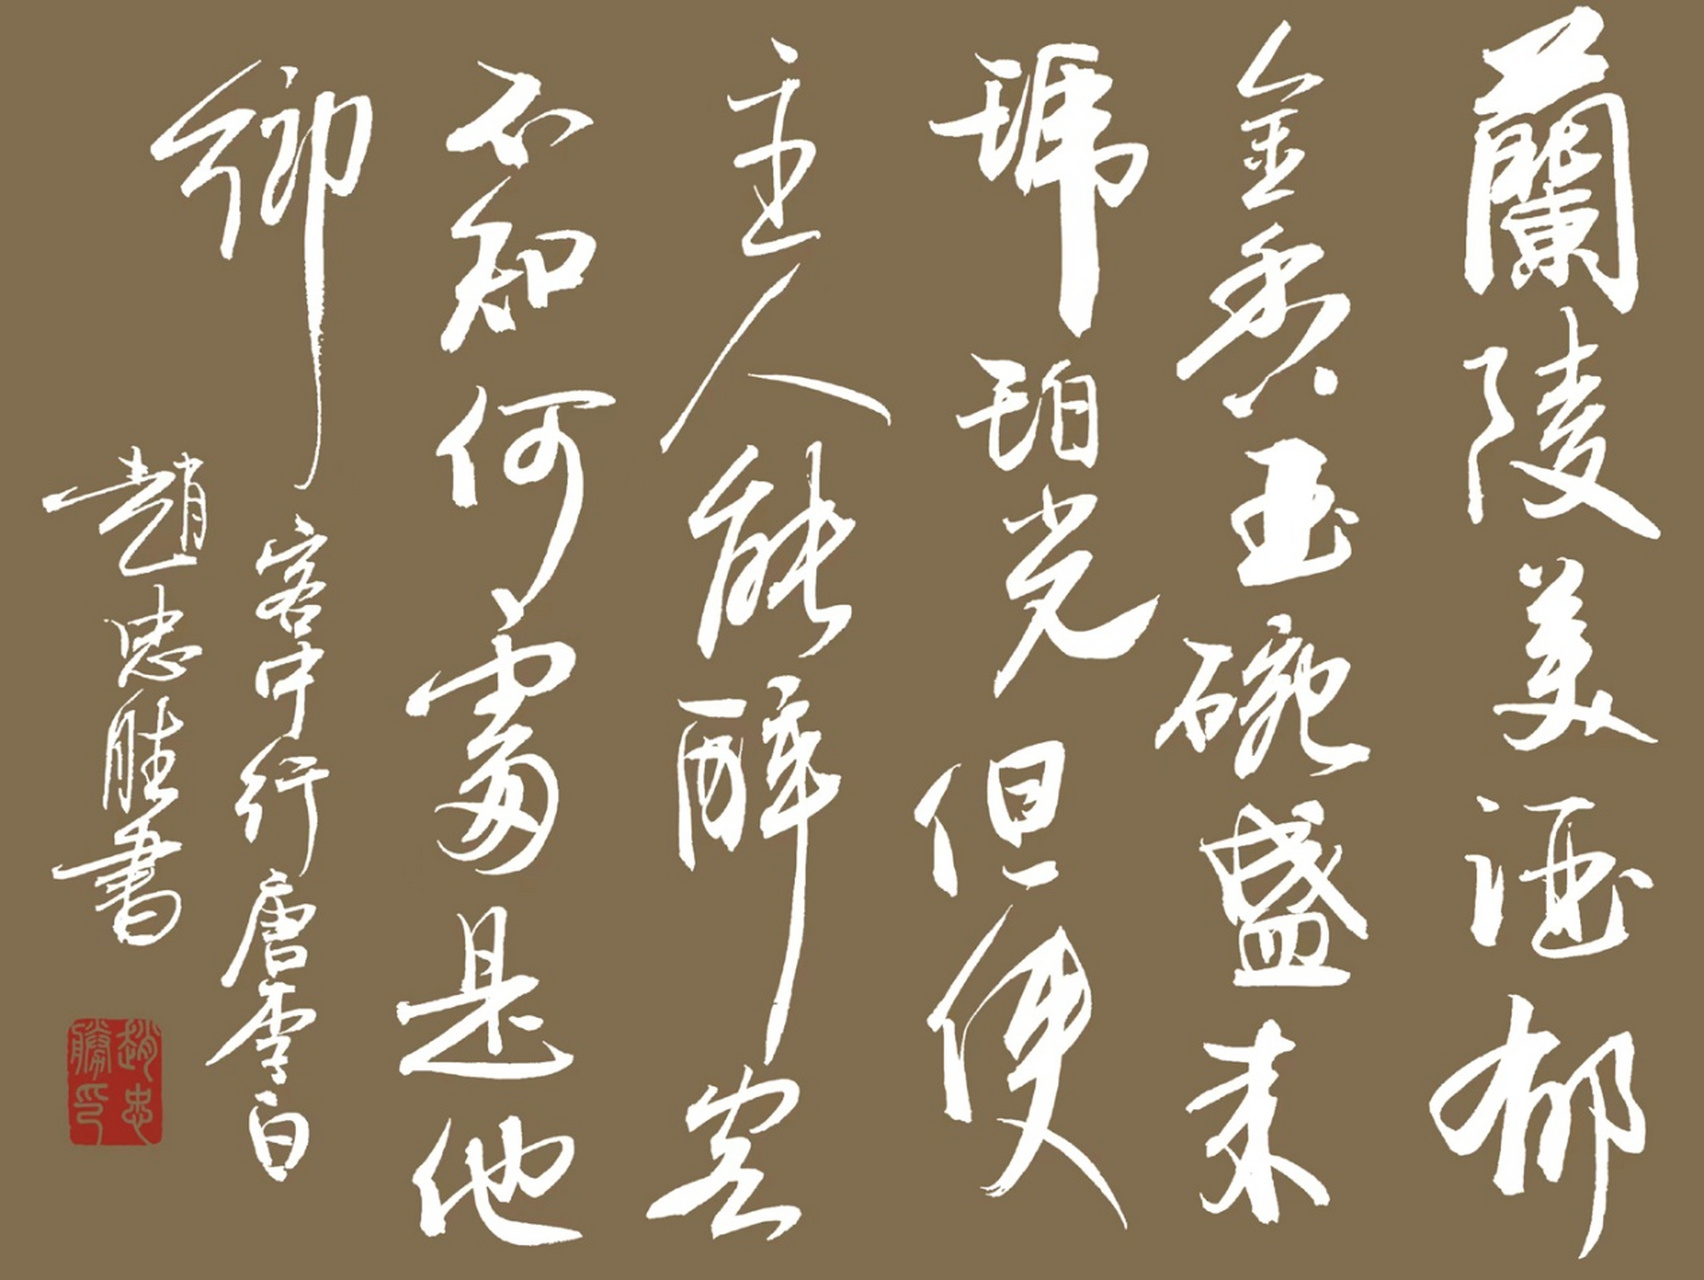 蘭陵美酒郁
金香玉碗盛来
琥珀光但使
主人能醉客
不知何處是他
鄉
客中行唐李白
趙忠胜書
趙忠
勝印